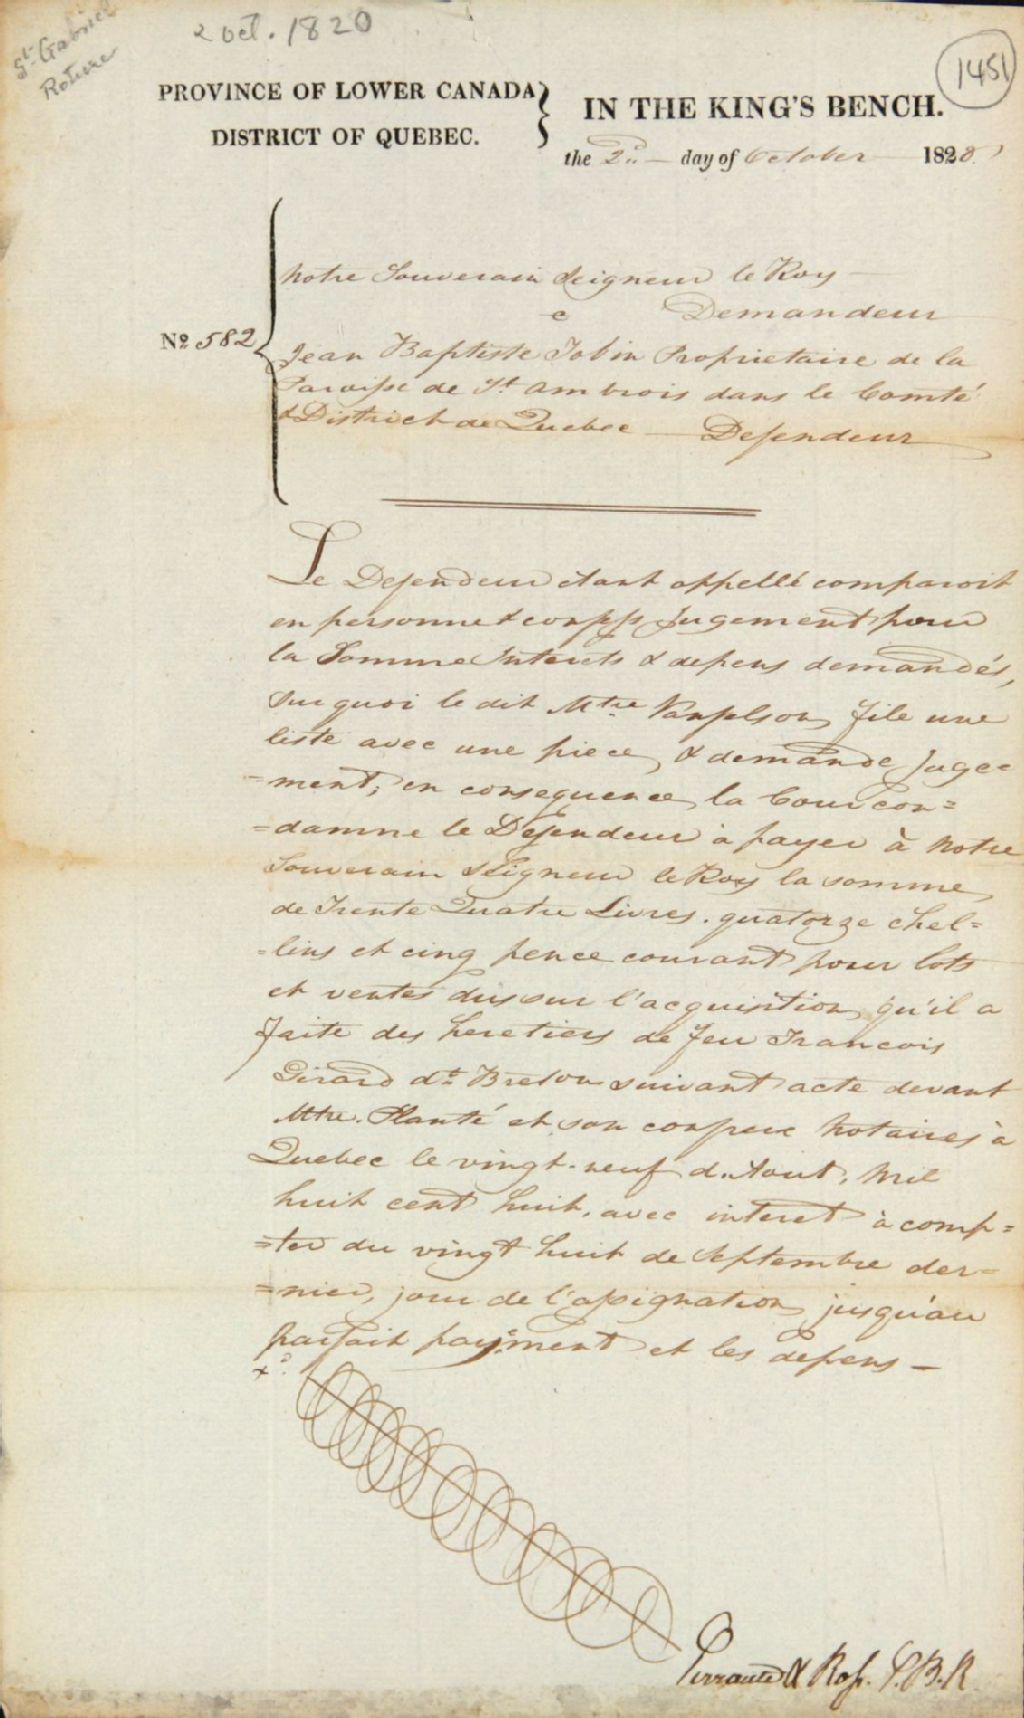 St. Gabriel
Roture
2 Oct. 1820
1451
PROVINCE OF LOWER CANADA
DISTRICT OF QUEBEC.
IN THE KING'S BENCH.
the 2d. day of October 1820
Notre Souverain Seigneur le Roy
c Demandeur
No 582
Jean Baptiste Jobin Proprietaire de la
Paroisse de St. Ambrois dans le Comté
& District de Quebec Defendeur
Le Defendeur etant appellé comparoit
en personne & confess Jugement pour
la Somme Interets & depens demandés,
sur quoi le dit Mtre. Vanfelson file une
liste avec une piece, & demande Juge=
=ment; en consequence la Cour con=
=damne le Defendeur à payer à Notre
Souverain Seigneur le Roy la somme
de Trente Quatre Livres quatorze chel=
=lins et cinq pence courant pour lots
et ventes dus sur l'acquisition qu'il a
faite des heretiers de feu Francois
Girard dt. Breton suivant acte devant
Mtre. Planté et son confrere Notaires à
Quebec le vingt-neuf d'Aout, Mil
huit cent huit, avec interet à comp=
=ter du vingt huit de Septembre der=
=nier, jour de l'assignation jusqu'au
parfait payment et les depens —
Perrault & Ross. P.B.R.